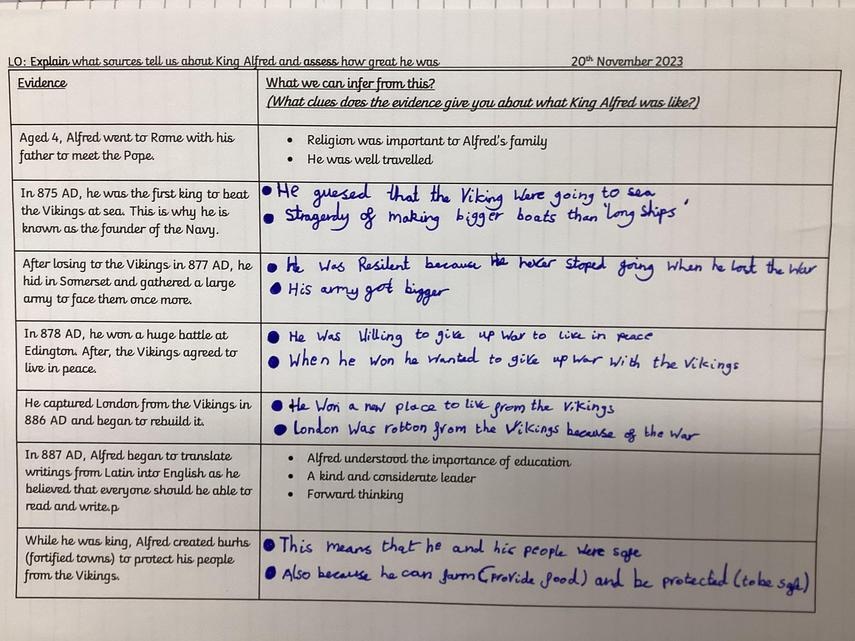 LO: Explain what sources tell us about King Alfred and assess how great he was 20th November 2023
Evidence
What we can infer from this?
(What clues does the evidence give you about what King Alfred was like?)
Aged 4, Alfred went to Rome with his
father to meet the Pope.
• Religion was important to Alfred's family
• He was well travelled
In 875 AD, he was the first king to beat
the Vikings at sea. This is why he is
known as the founder of the Navy.
• He guesed that the Viking were going to sea
• Stragerdy of making bigger boats than 'long ships'
After losing to the Vikings in 877 AD, he
hid in Somerset and gathered a large
army to face them once more.
• He was Resilent because He never stoped going when he lost the war
• His army got bigger
In 878 AD, he won a huge battle at
Edington. After, the Vikings agreed to
live in peace.
• He was Willing to give up war to live in peace
• When he won he wanted to give up war with the Vikings
He captured London from the Vikings in
886 AD and began to rebuild it.
• He won a new place to live from the Vikings
• London was rotton from the Vikings because of the war
In 887 AD, Alfred began to translate
writings from Latin into English as he
believed that everyone should be able to
read and write.p
• Alfred understood the importance of education
• A kind and considerate leader
• Forward thinking
While he was king, Alfred created burhs
(fortified towns) to protect his people
from the Vikings.
• This means that he and his people were safe
• Also because he can farm (Provide food) and be protected (to be safe)